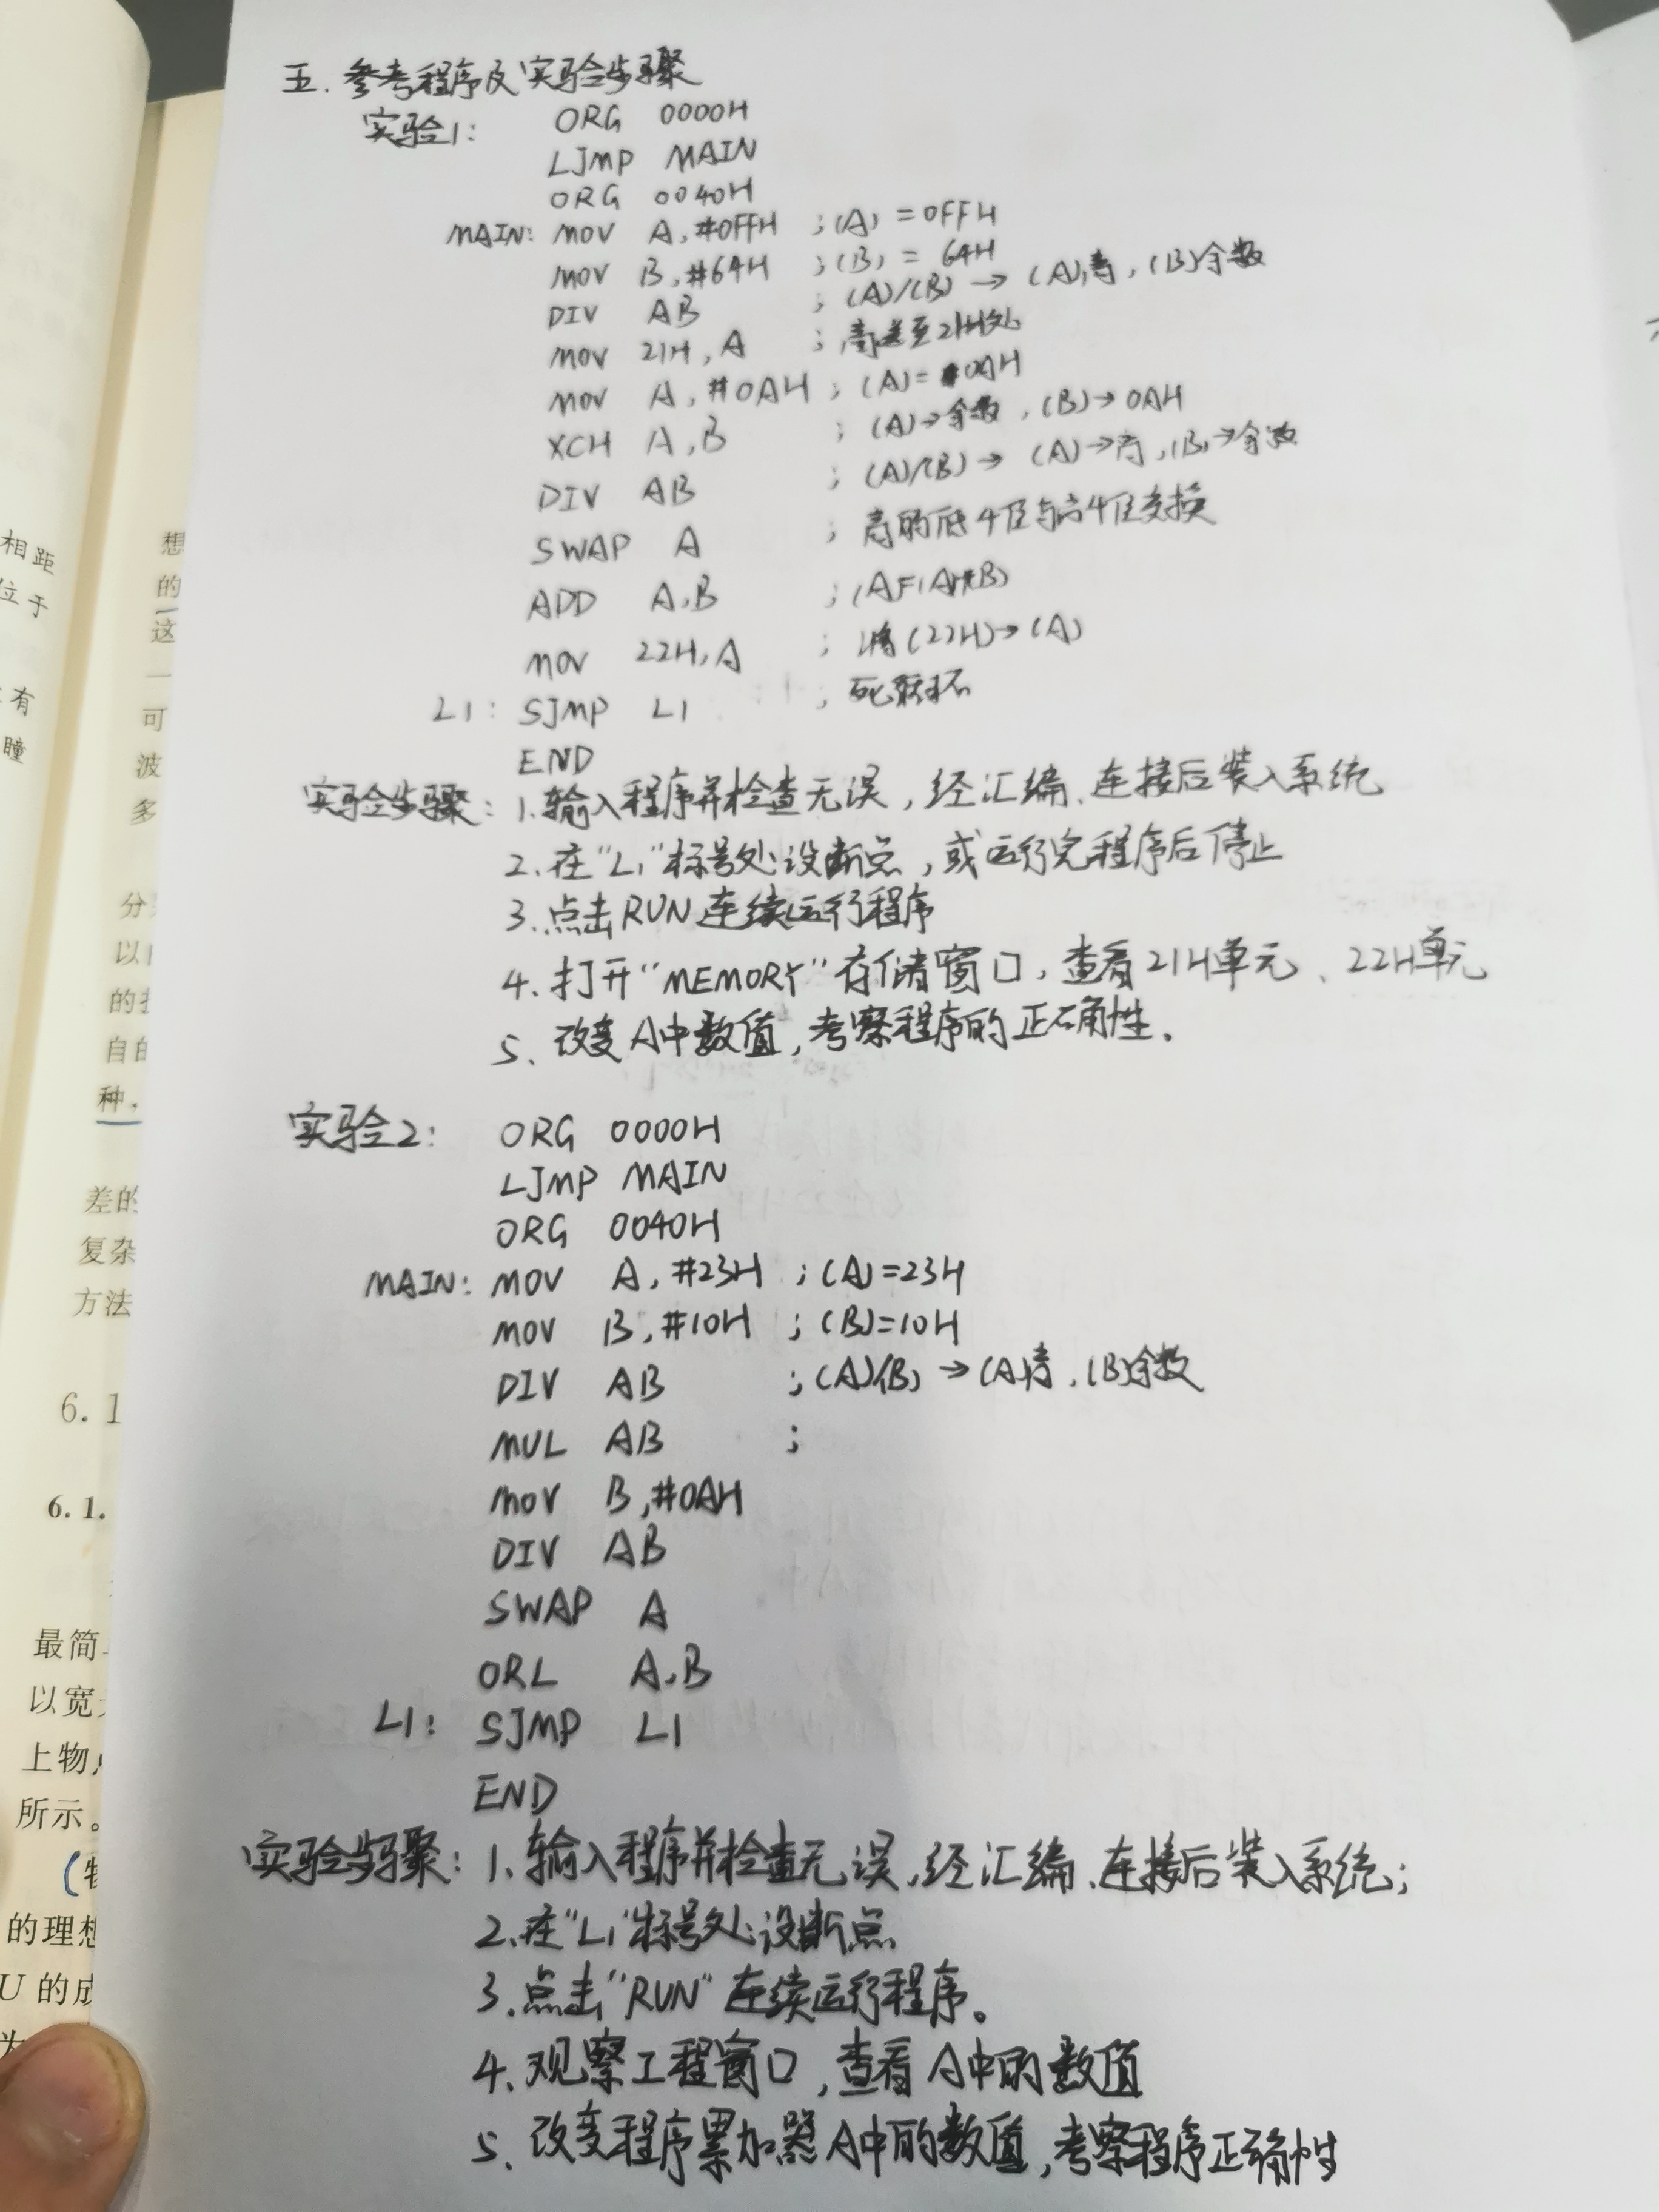 五. 参考程序及实验步骤
实验1: ORG 0000H
LJMP MAIN
ORG 0040H
MAIN: MOV A, #0FFH ;(A)=0FFH
MOV B, #64H ;(B)=64H
DIV AB ;(A)/(B)→(A)商,(B)余数
MOV 21H, A ;商送至21H处
MOV A, #0AH ;(A)=0AH
XCH A,B ;(A)→余数,(B)→0AH
DIV AB ;(A)/(B)→(A)→商,(B)→余数
SWAP A ;商的低4位与高4位交换
ADD A,B ;(A)=(A)+(B)
MOV 22H,A ;将(22H)→(A)
L1: SJMP L1 ;死循环
END
实验步骤: 1.输入程序并检查无误,经汇编、连接后装入系统
2.在"L1"标号处设断点,或运行完程序后停止
3.点击RUN连续运行程序
4.打开"MEMORY"存储窗口,查看21H单元、22H单元
5、改变A中数值,考察程序的正确性.
实验2: ORG 0000H
LJMP MAIN
ORG 0040H
MAIN: MOV A, #23H ;(A)=23H
MOV B, #10H ;(B)=10H
DIV AB ;(A)/(B)→(A)商,(B)余数
MUL AB ;
MOV B,#0AH
DIV AB
SWAP A
ORL A,B
L1: SJMP L1
END
实验步骤: 1、输入程序并检查无误,经汇编、连接后装入系统;
2、在"L1"标号处设断点
3.点击"RUN"连续运行程序。
4、观察工程窗口,查看A中的数值
5、改变程序累加器A中的数值,考察程序正确性
相距
位于
有
瞳
想
的
这
一
可
波
多
分
以
的
自
种,
差的
复杂
方法
6.1
6.1.
最简
以宽
上物
所示。
的理想
U的成